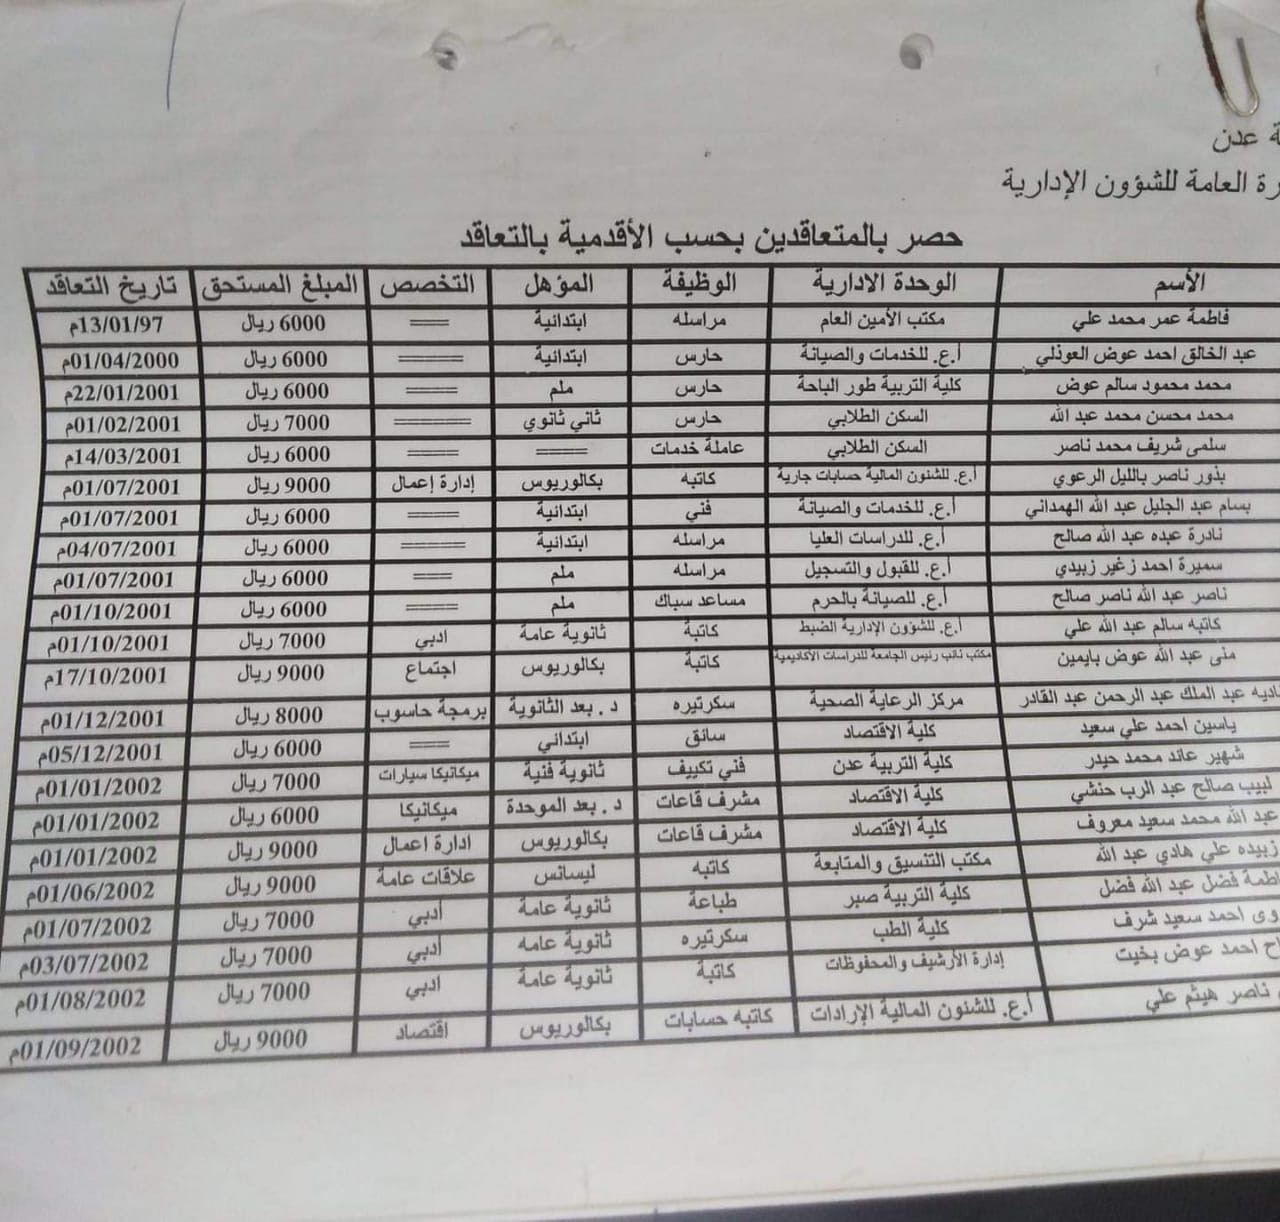 عدن
العامة للشؤون الإدارية
حصر بالمتعاقدين بحسب الأقدمية بالتعاقد
الأسم الوحدة الادارية الوظيفة المؤهل التخصص المبلغ المستحق تاريخ التعاقد
فاطمة عمر محمد علي مكتب الأمين العام مراسله ابتدائية ==== 6000 ريال 13/01/97م
عبد الخالق احمد عوض العوذلي أ.ع. للخدمات والصيانة حارس ابتدائية ====== 6000 ريال 01/04/2000م
محمد محمود سالم عوض كلية التربية طور الباحة حارس ملم ==== 6000 ريال 22/01/2001م
محمد محسن محمد عبد الله السكن الطلابي حارس ثاني ثانوي ======= 7000 ريال 01/02/2001م
سلمى شريف محمد ناصر السكن الطلابي عاملة خدمات ===== ===== 6000 ريال 14/03/2001م
بذور ناصر بالليل الرعوي أ.ع. للشئون المالية حسابات جارية كاتبه بكالوريوس إدارة إعمال 9000 ريال 01/07/2001م
بسام عبد الجليل عبد الله الهمداني أ.ع. للخدمات والصيانة فني ابتدائية ===== 6000 ريال 01/07/2001م
نادرة عبده عبد الله صالح أ.ع. للدراسات العليا مراسله ابتدائية ====== 6000 ريال 04/07/2001م
سميرة احمد زغير زبيدي أ.ع. للقبول والتسجيل مراسله ملم ==== 6000 ريال 01/07/2001م
ناصر عبد الله ناصر صالح أ.ع. للصيانة بالحرم مساعد سباك ملم ===== 6000 ريال 01/10/2001م
كاتبه سالم عبد الله علي أ.ع. للشؤون الإدارية الضبط كاتبة ثانوية عامة ادبي 7000 ريال 01/10/2001م
منى عبد الله عوض بايمين مكتب نائب رئيس الجامعة للدراسات الأكاديمية كاتبة بكالوريوس اجتماع 9000 ريال 17/10/2001م
عبد الملك عبد الرحمن عبد القادر مركز الرعاية الصحية سكرتيره د. بعد الثانوية برمجة حاسوب 8000 ريال 01/12/2001م
ياسين احمد علي سعيد كلية الاقتصاد سائق ابتدائي ==== 6000 ريال 05/12/2001م
شهير عائد محمد حيدر كلية التربية عدن فني تكييف ثانوية فنية ميكانيكا سيارات 7000 ريال 01/01/2002م
لبيب صالح عبد الرب حنشي كلية الاقتصاد مشرف قاعات د. بعد الموحدة ميكانيكا 6000 ريال 01/01/2002م
عبد الله محمد سعيد معروف كلية الاقتصاد مشرف قاعات بكالوريوس ادارة اعمال 9000 ريال 01/01/2002م
زبيده علي هادي عبد الله مكتب التنسيق والمتابعة كاتبه ليسانس علاقات عامة 9000 ريال 01/06/2002م
فضل عبد الله فضل كلية التربية صبر طباعة ثانوية عامة أدبي 7000 ريال 01/07/2002م
احمد سعيد شرف كلية الطب سكرتيره ثانوية عامه أدبي 7000 ريال 03/07/2002م
احمد عوض بخيت إدارة الأرشيف والمحفوظات كاتبة ثانوية عامة ادبي 7000 ريال 01/08/2002م
ناصر هيثم علي أ.ع. للشئون المالية الإرادات كاتبه حسابات بكالوريوس اقتصاد 9000 ريال 01/09/2002م